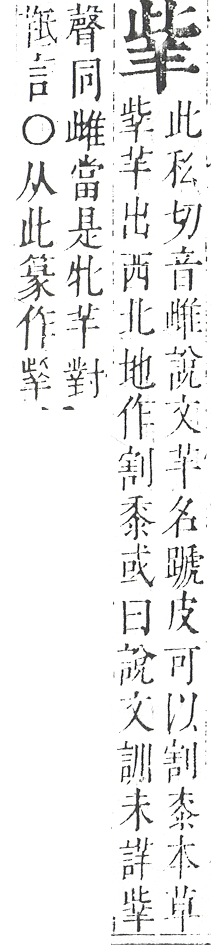 𦍧
此私切音雌說文羊名蹏皮可以割桼本草
𦍧羊出西北地作割黍或曰說文訓未詳𦍧
聲同雌當是牝羊對
羝言○从此篆作𦍧